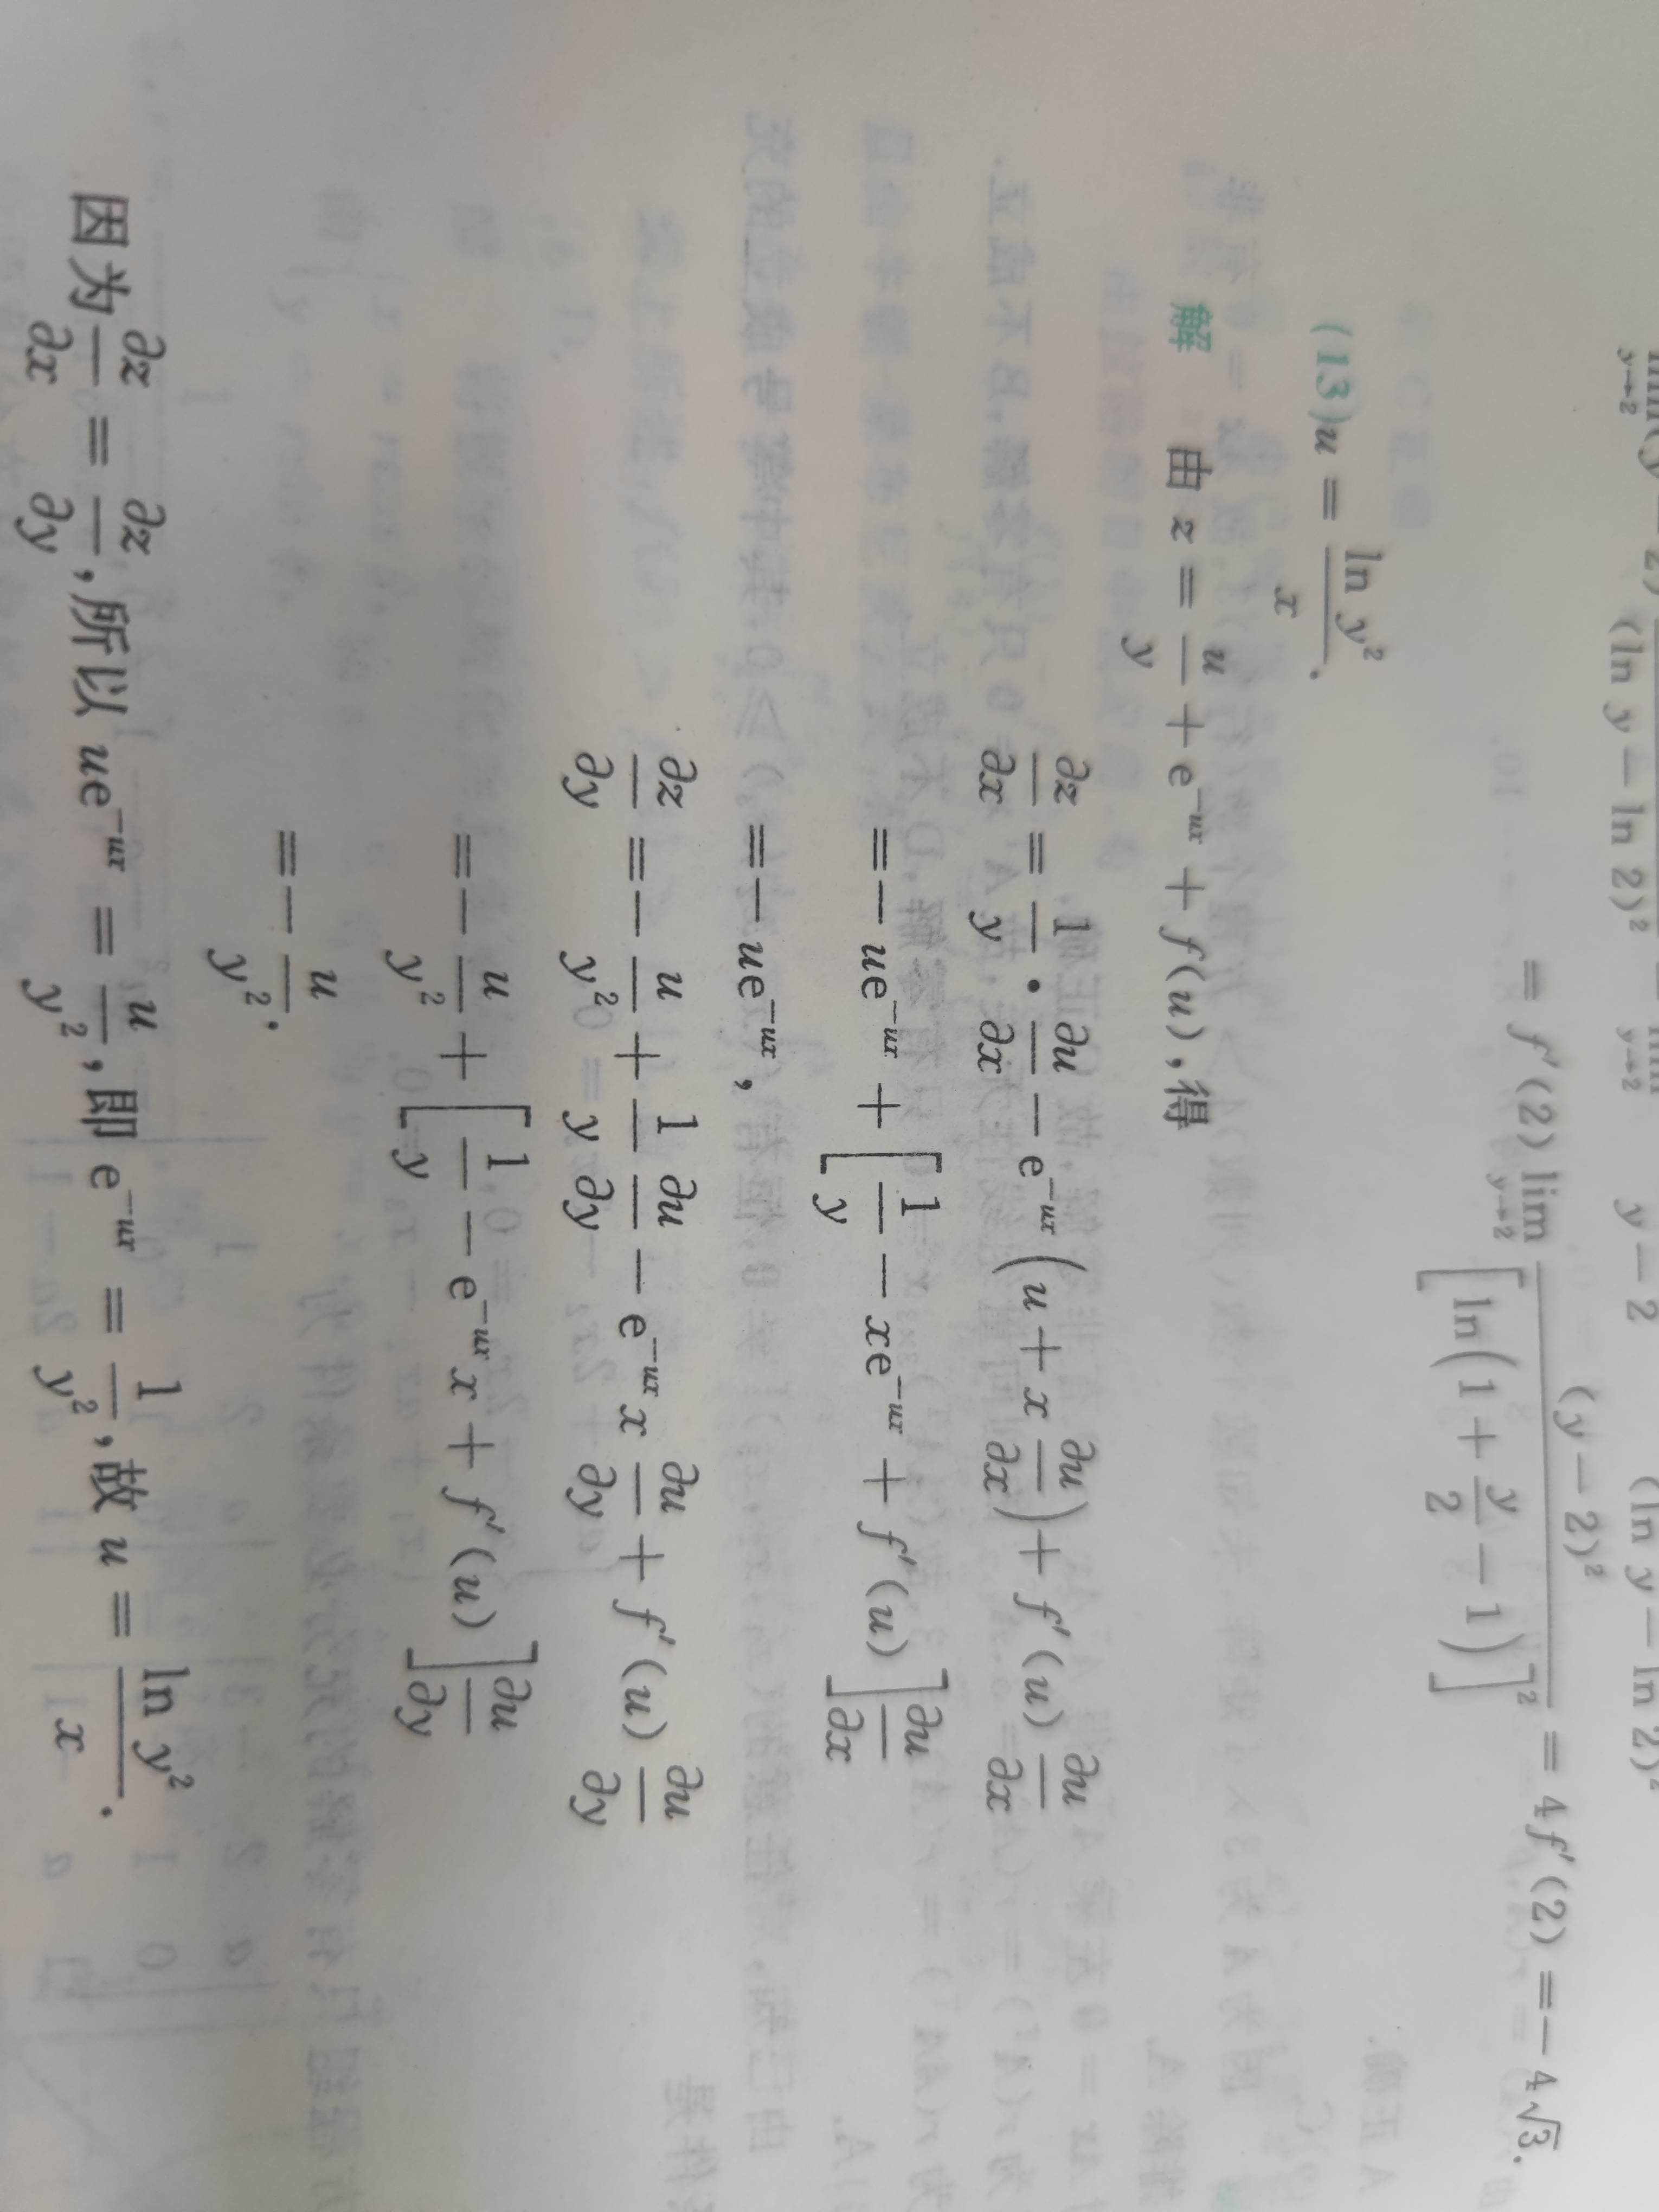 = f′(2) lim_{y→2} (y − 2)² / [ln(1 + y/2 − 1)]² = 4f′(2) = − 4√3.
(13) u = ln y² / x.
解 由 z = u/y + e^{−ux} + f(u),得
∂z/∂x = 1/y · ∂u/∂x − e^{−ux}(u + x ∂u/∂x) + f′(u) ∂u/∂x
= − ue^{−ux} + [1/y − xe^{−ux} + f′(u)] ∂u/∂x
= − ue^{−ux},
∂z/∂y = − u/y² + 1/y ∂u/∂y − e^{−ux} x ∂u/∂y + f′(u) ∂u/∂y
= − u/y² + [1/y − e^{−ux} x + f′(u)] ∂u/∂y
= − u/y².
因为 ∂z/∂x = ∂z/∂y,所以 ue^{−ux} = u/y²,即 e^{−ux} = 1/y²,故 u = ln y² / x.